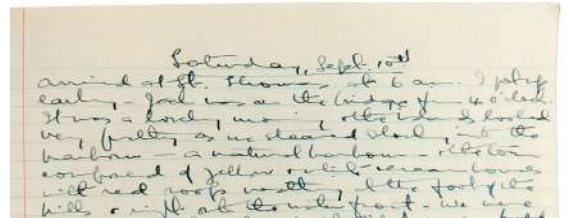 Saturday, Sept. 10th
arrived at St. Thomas at 6 am. I got up
early - Jack was on the bridge from 4 o'clock.
It was a lovely morning, & the island looked
very pretty as we steamed slowly into the
harbour - a natural harbour - & the town
composed of yellow & white & cream houses
with red roofs nestling at the foot of the
hills & right on the water front - We were